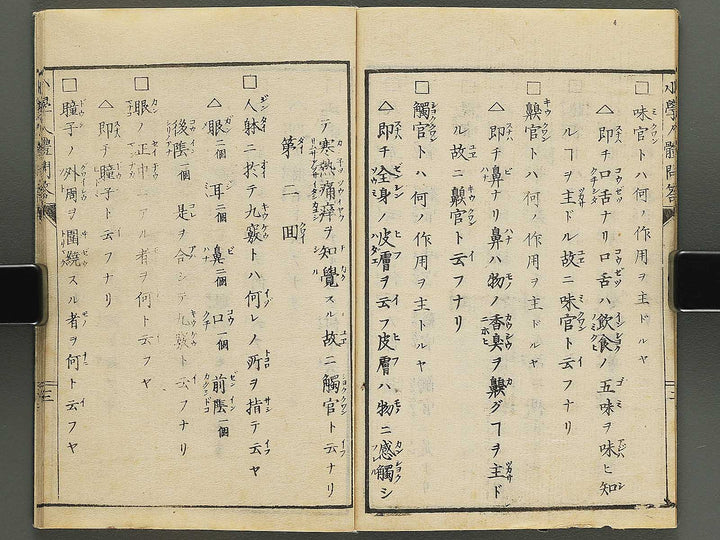 □味官トハ何ノ作用ヲ主ドルヤ
△即チ口舌ナリ口舌ハ飲食ノ五味ヲ味ヒ知
ルヿヲ主ドル故ニ味官ト云フナリ
□齅官トハ何ノ作用ヲ主ドルヤ
△即チ鼻ナリ鼻ハ物ノ香臭ヲ齅グヿヲ主ド
ル故ニ齅官ト云フナリ
□觸官トハ何ノ作用ヲ主ドルヤ
△即チ全身ノ皮膚ヲ云フ皮膚ハ物ニ感觸シ
テ寒熱痛痒ヲ知覺スル故ニ觸官ト云ナリ
第二回
□人躰ニ於テ九竅トハ何レノ所ヲ指テ云ヤ
△眼二個耳二個鼻二個口一個前陰一個
後陰一個是ヲ合シテ九竅ト云フナリ
□眼ノ正中ニアル者ヲ何ト云フヤ
△即チ瞳子ト云フナリ
□瞳子ノ外周ヲ圍繞スル者ヲ何ト云フヤ
小學人體問答
三